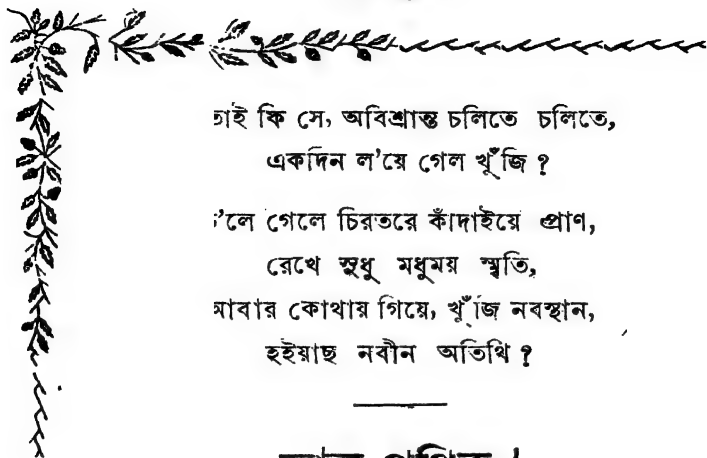 তাই কি সে, অবিশ্রান্ত চলিতে চলিতে,
একদিন ল'য়ে গেল খুঁজি ?
চ'লে গেলে চিরতরে কাঁদাইয়ে প্রাণ,
রেখে সুধু মধুময় স্মৃতি,
আবার কোথায় গিয়ে, খুঁজি নবস্থান,
হইয়াছ নবীন অতিথি ?